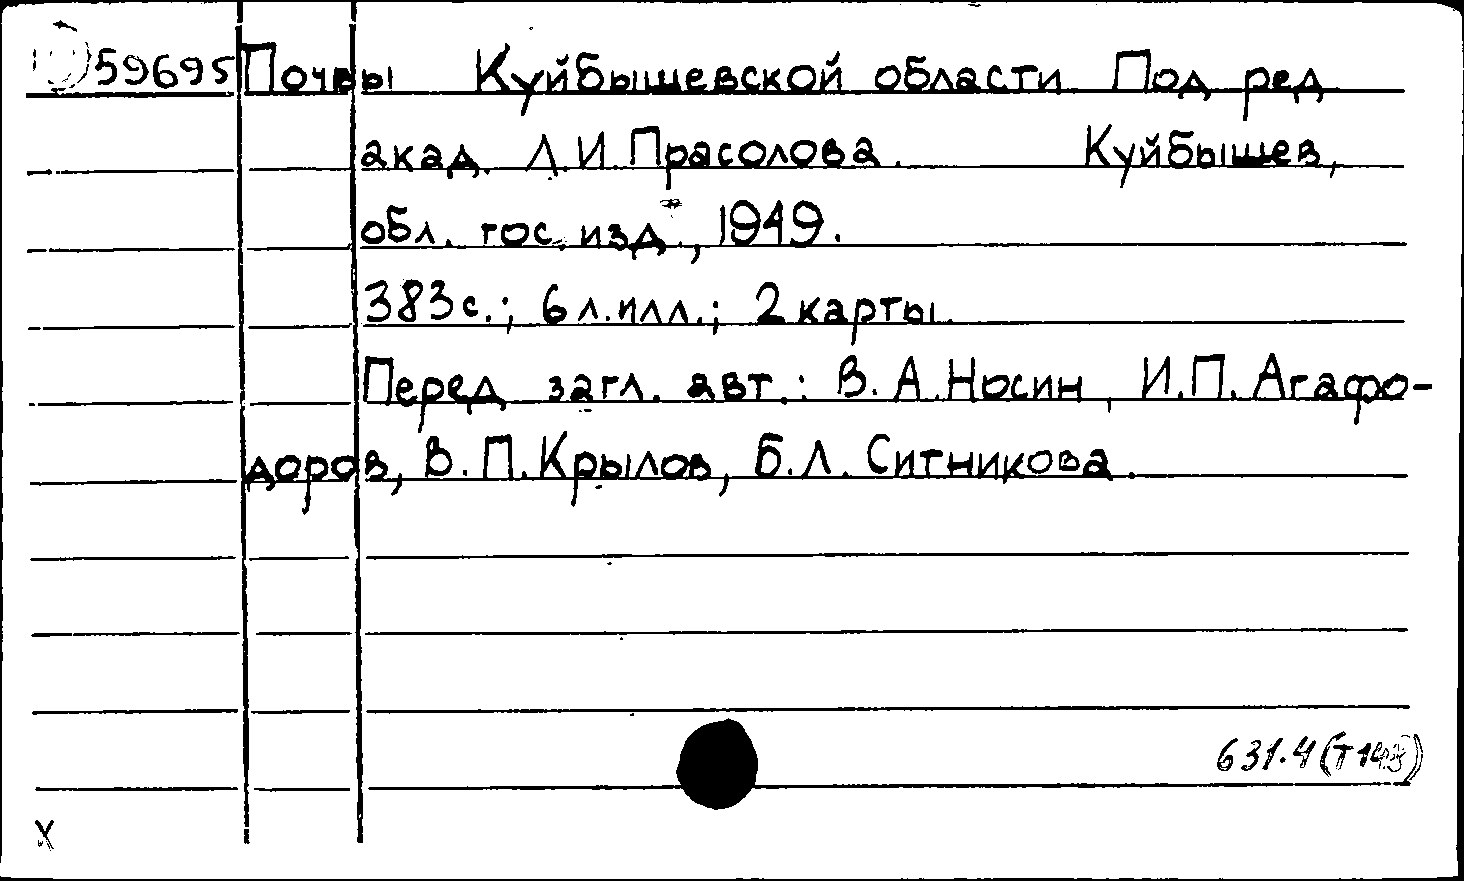 59695 Почвы Куйбышевской области Под ред
акад. Л.И. Прасолова. Куйбышев,
обл. гос. изд., 1949.
383 с.; 6 л. илл.; 2 карты.
Перед загл. авт.: В.А. Носин, И.П. Агафо-
доров, В.П. Крылов, Б.Л. Ситникова.
631.4
X